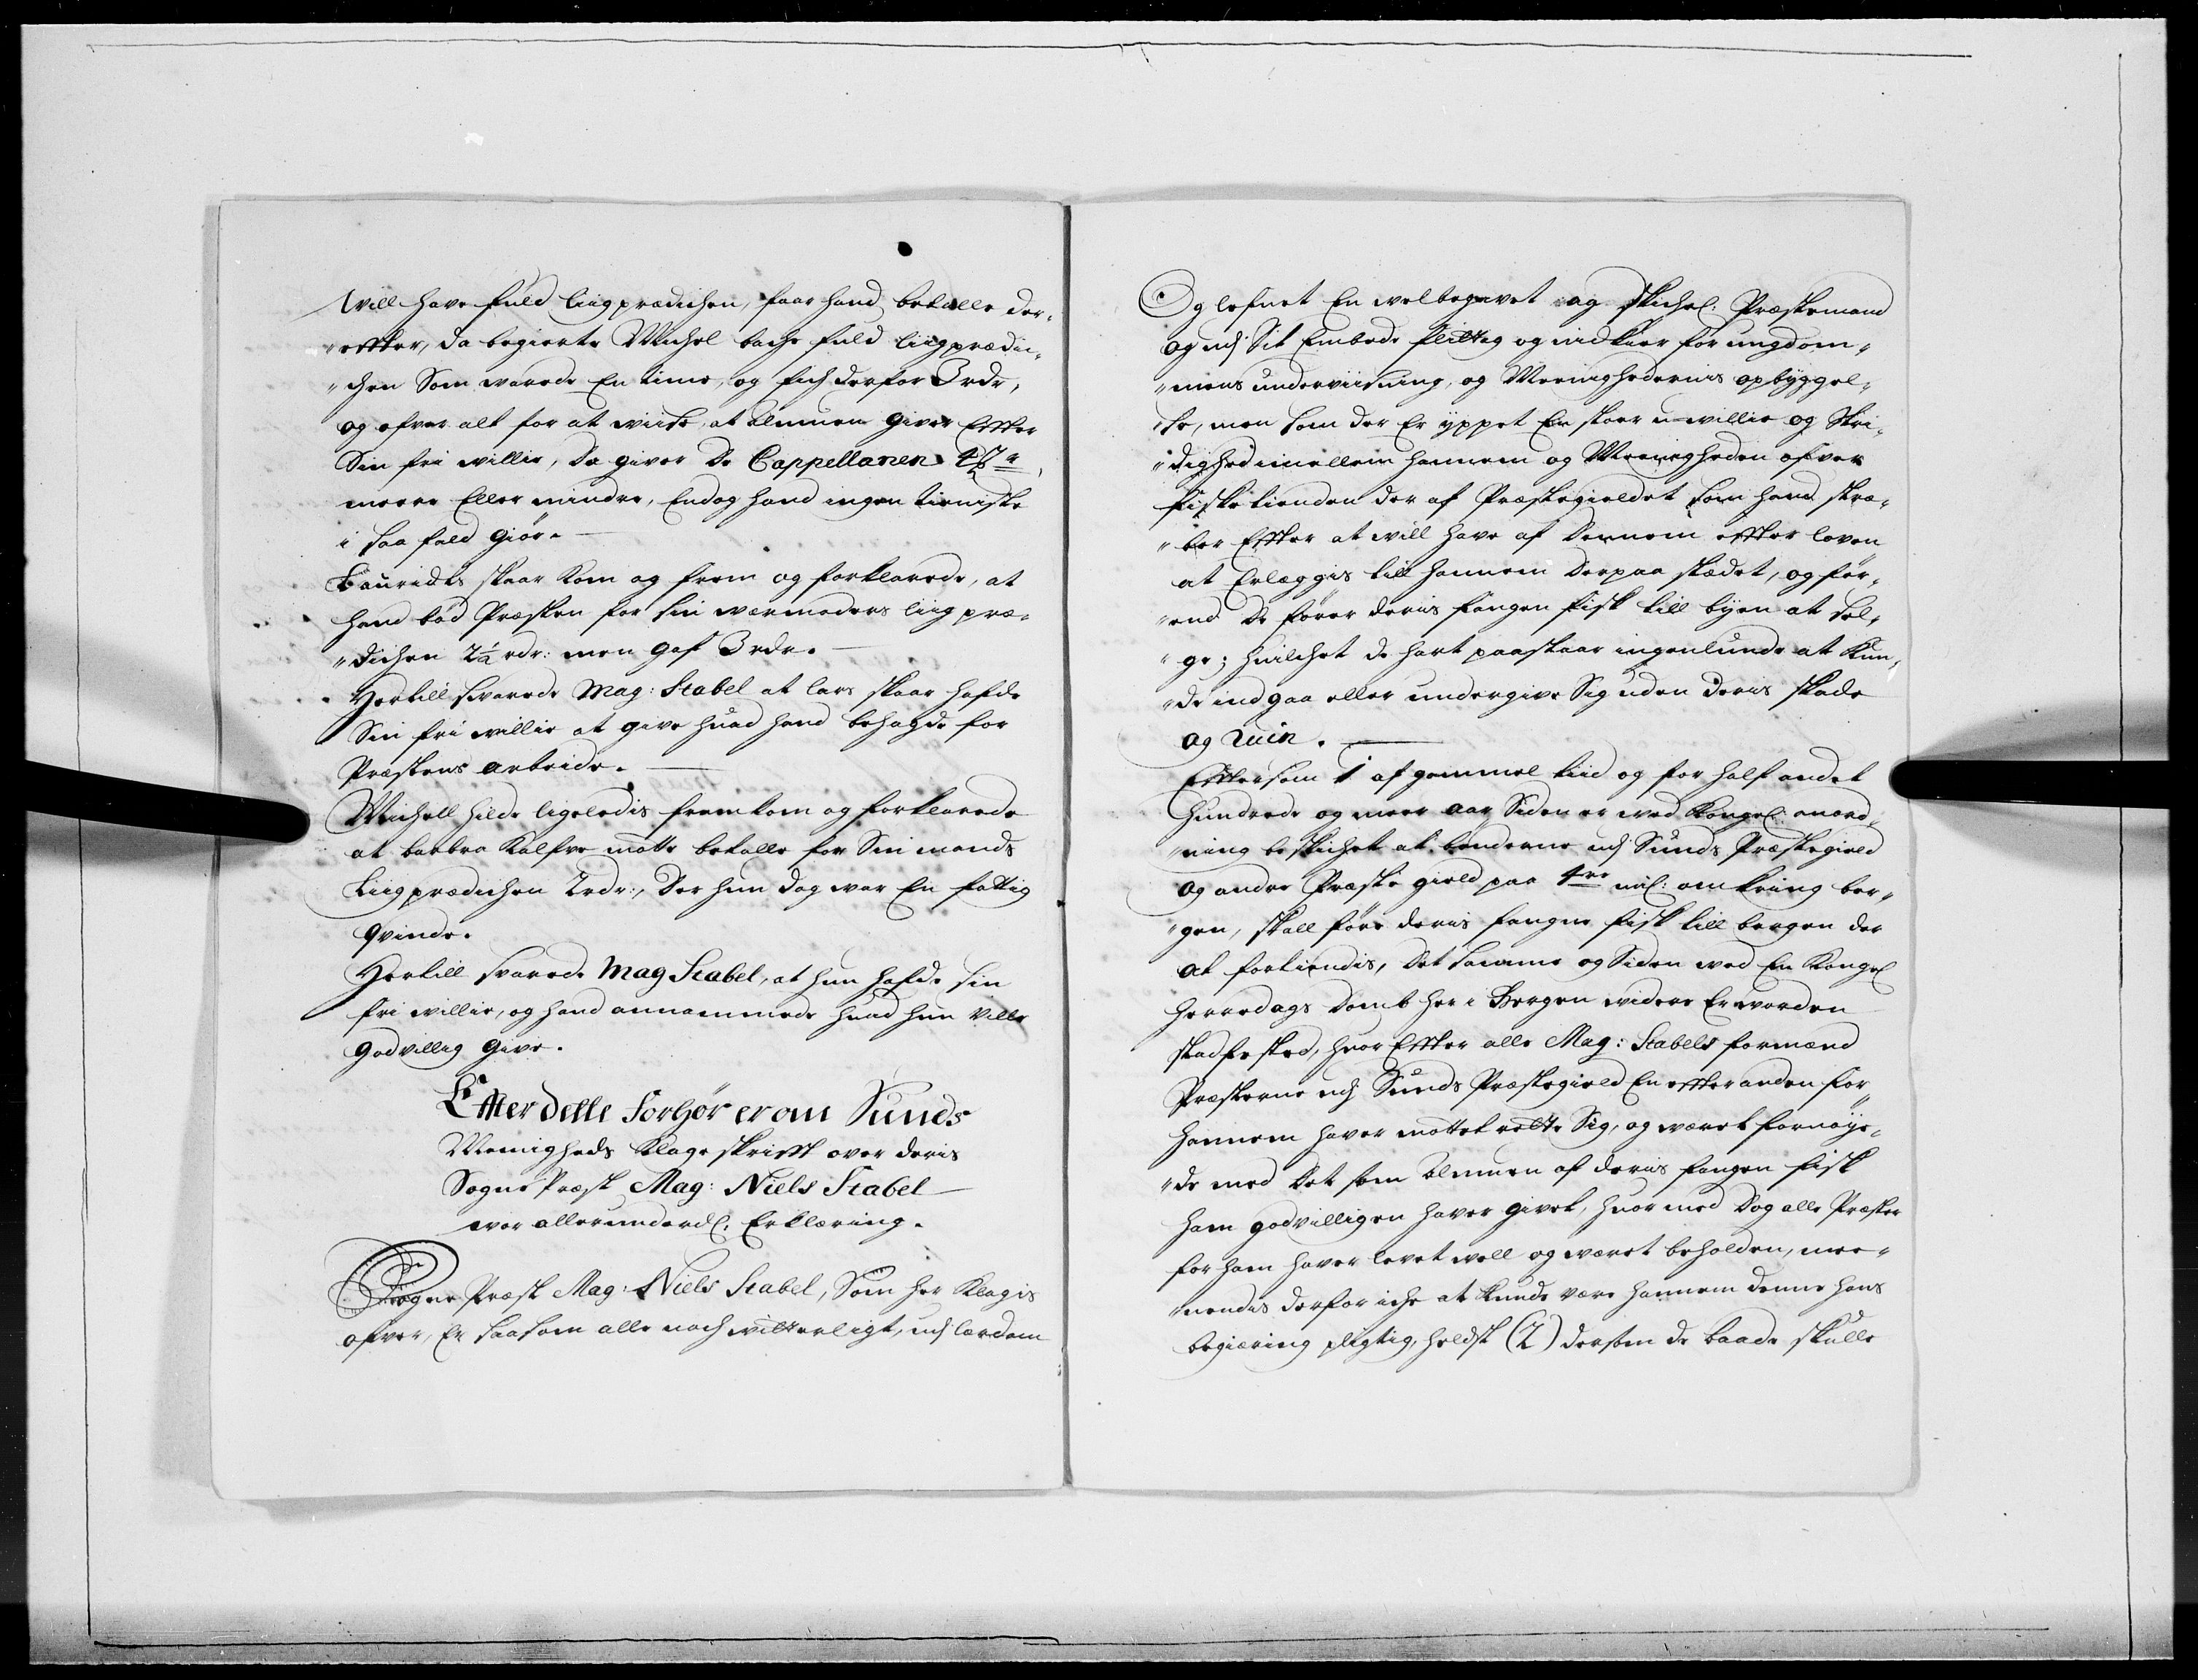 Will have fuld liigprædichen, faar hand betalle der-
"effter, da begierte Michel bache fuld liigprædi-
"chen Som warede En time, og fich derfor 3 rdr,
og ofver alt for at wiise, at Almuen giver Effter
Sin fri willie, da giver de Cappellanen
meere Eller mindre, Endog hand ingen tieniste
i saa fald giör. —
Lauridts skaar Kom og frem og forklarede, at
hand böd Præsten for sin wærmoders liig præ-
"dichen 2½ rdr: men gaf 3 rdr. —
Hertill svarede Mag: Stabel at lars skaar hafde
Sin fri willie at give huad hand behagde for
Præstens arbeide. —
Michell Hilde ligeledis fremkom og forklarede
at barbra Kalfve motte betalle for Sin mands
Liigprædichen 2 rdr:, Der hun dog war En fattig
qvinde.
Hertill svarede Mag Stabel, at hun hafde sin
fri willie, og hand annammede huad hun ville
godvillig give.
Effter dette forhör er om Sunds
Menigheds Klage skrifft over deris
Sogne Præst Mag: Niels Stabel
wor allerunderd: Erklæring.
Sogne Præst Mag: Niels Stabel, Som her Klagis
ofver, Er saasom alle noch witterligt, udj lærdom
Og lefnet En welbegavet og skichel: Præstemand
og udj Sit Embede flittig og nidkier for ungdom-
"mens underviisning, og Meenighedernis opbyggel-
"se, men som der Er yppet En stoer u-willie og Stri-
"dighed imellem hannem og Meenigheden ofver
fiske tienden der af Præstegieldet som hand stræ-
"ber Effter at will have af dennem effter loven
at Erlæggis till hannem derpaa stædet, og för-
"end de förer deris fangen fisk till byen at sel-
"ge; huilchet de hart paastaar ingenlunde at Kun-
"de indgaa eller undergive Sig uden deris skade
og Ruin. —
Efftersom 1 af gammel tiid og for half andet
hundrede og meer aar Siden er wed Kongel: anord-
"ning beskichet at bönderne udj Sunds Præstegield
og andre Præste gield paa 4re mil: omkring ber-
"gen, skall före deris fangne fisk till bergen der
at fortiendis, det samme og Siden wed En Kongel
herredags Domb her i Bergen widere Er worden
stadfested, huor Effter alle Mag: Stabels formænd
Præsterne udj Sunds Præstegield En effter anden för
hannem haver mottet rette Sig, og wæret fornöye-
"de med det som Almuen af deris fangen fisk
ham godvilligen haver givet, huor med dog alle Præster
for ham haver levet well og wæret beholden, mee-
"nendis derfor iche at kunde være hannem denne hans
begiæring pligtig, heldst (2) dersom de baade skulle